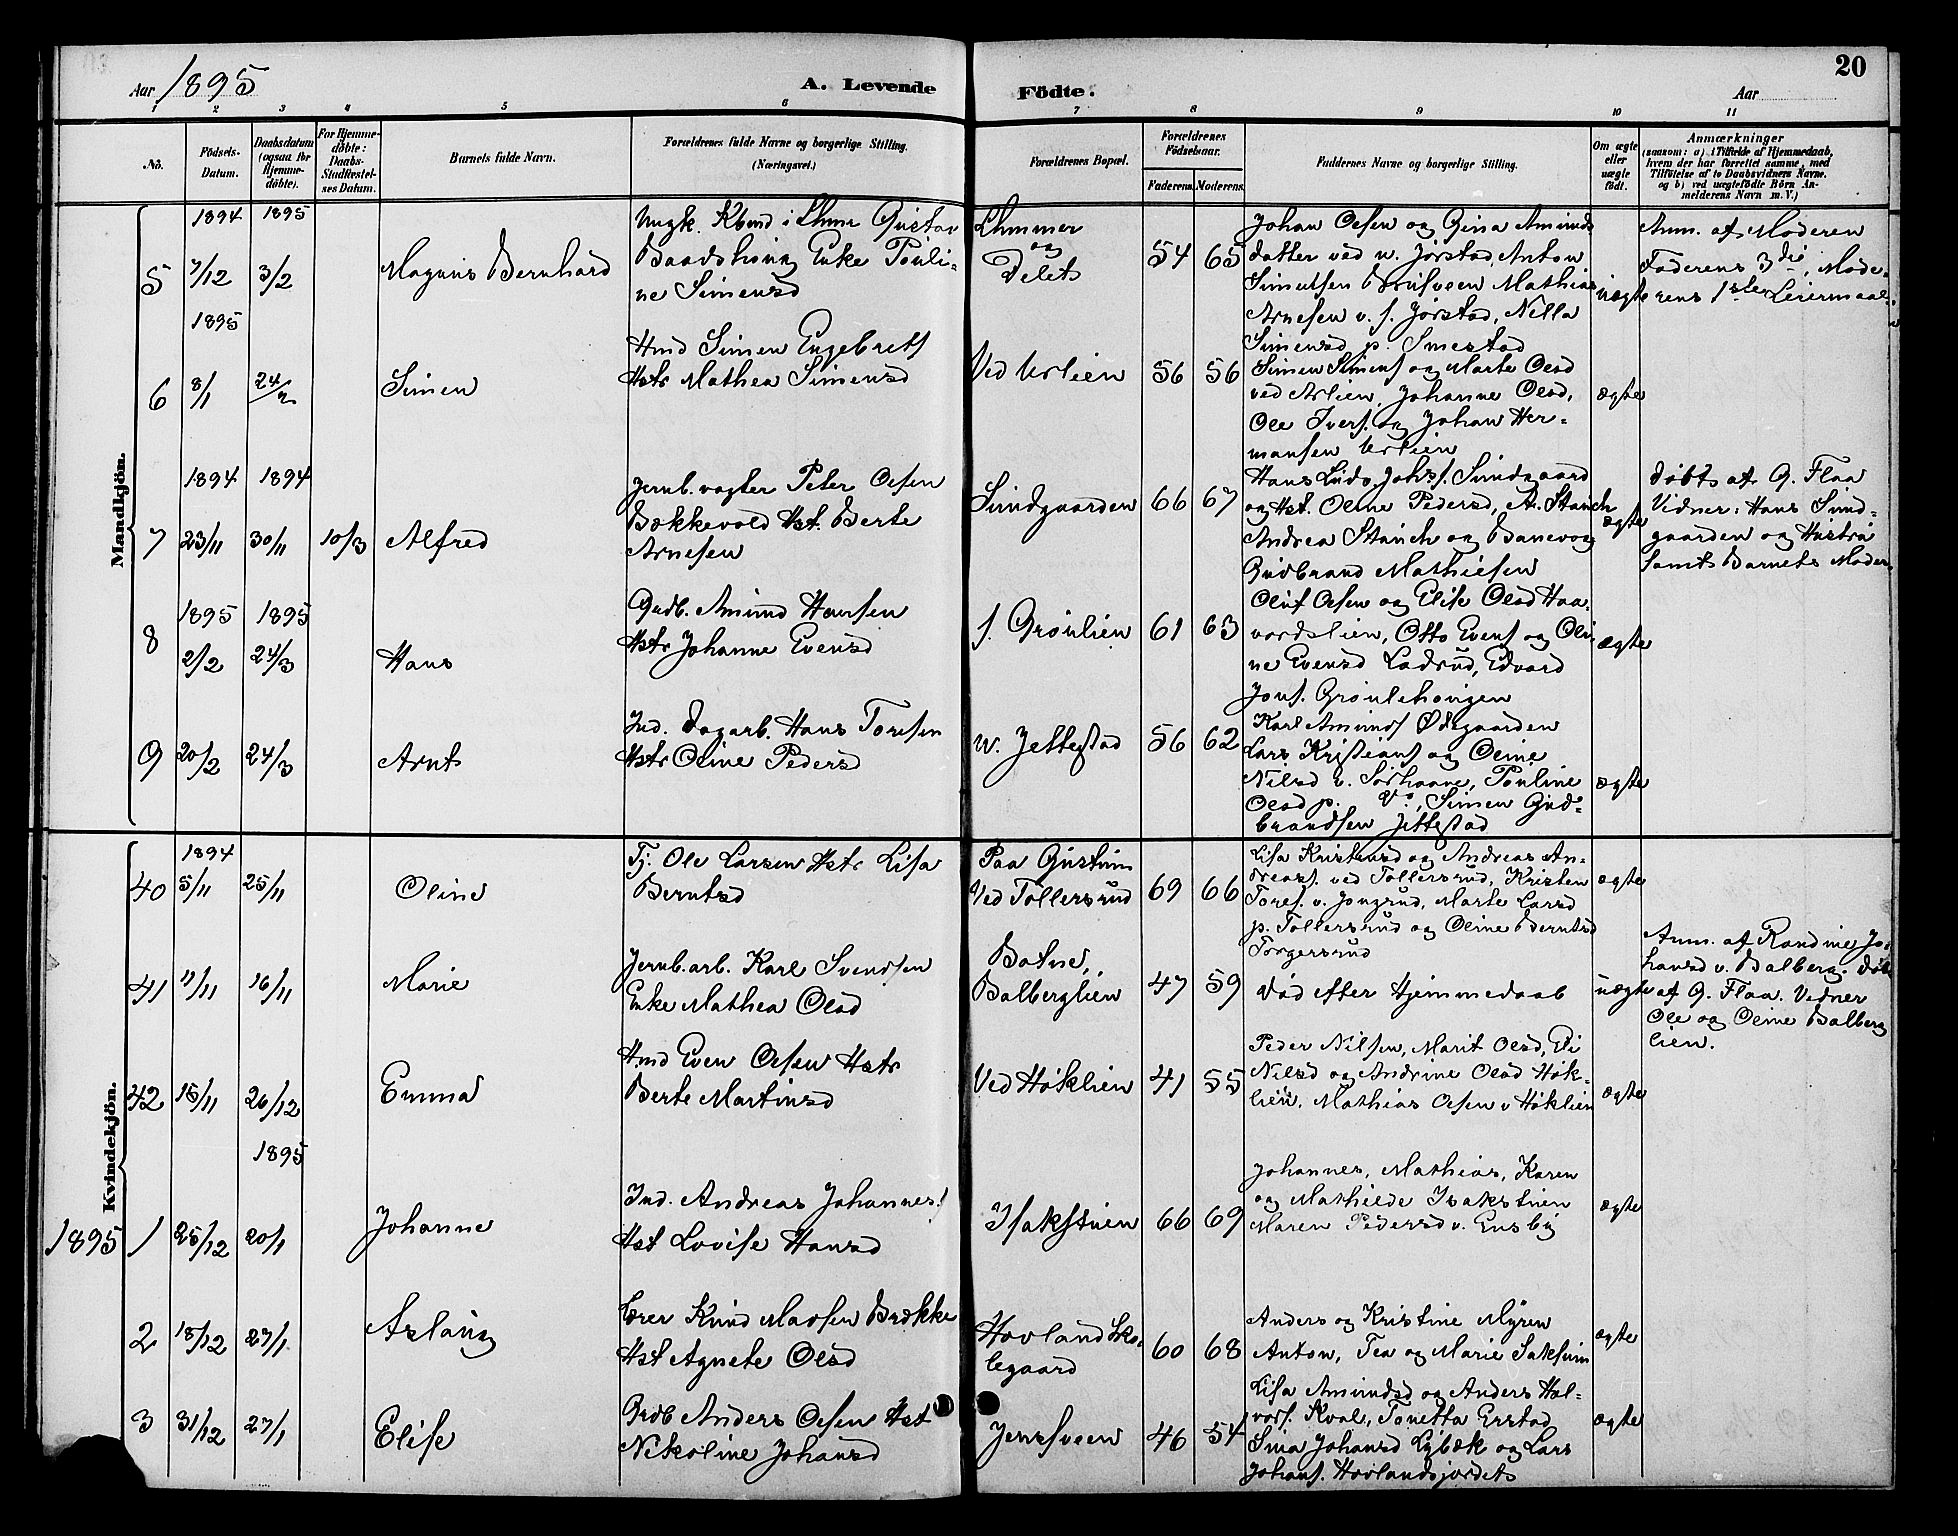 Aar 1895
A. Levende
Födte.
Aar
20
1 2 3 4 5 6 7 8 9 10 11
No.
Födsels-
Datum.
Daabsdatum
(ogsaa for
Hjemme-
döbte).
For Hjemme-
döbte:
Daabs-
Stadfæstel-
ses Datum.
Barnets fulde Navn.
Forældrenes fulde Navne og borgerlige Stilling.
(Næringsvei.)
Forældrenes Bopæl.
Forældrenes
Födselsaar.
Faderens. Moderens.
Faddernes Navne og borgerlige Stilling.
Om ægte
eller
uægte
födt.
Anmærkninger
(saasom: a) i Tilfælde af Hjemmedaab,
hvem der har forrettet samme, med
Tilföielse af to Daabsvidners Navne.
og b) ved uægtefödte Börn An-
melderens Navn m. V.)
Mandkjön.
1894 1895
5 7/12 3/2
Magnus Bernhard
Ungk. Gustav
Baadshoug Enke Pouli-
ne Simensd
og
54 65
Johan Olsen og Gina Amunds
datter ved n. Jørstad, Anton
Mathias
Arnesen v. s. Jørstad, Nella
Simensd p. Smestad
uægte
Anm. af Moderen
Faderens 3die, Mode-
rens 1ste Leiermaal
1895
6 8/1 24/2
Simen
Hmd Simen Engebrets
Hstr Mathea Simensd
56 56
Simen Simens og Marte Olsd
ved Johanne Olsd,
Ole Ivers. og Johan Her-
mansen
ægte
1894 1894
7 23/11 30/11 10/3
Alfred
Jernb.vogter Peter Olsen
Bækkevold Hst. Berte
Arnesen
Sundgaarden
66 67
Hans Ludv. Johs. Sundgaard
og Hst. Oline Pedersd, A. Stanch
Andrea Stanch og Banevog
Gudbrand Mathiesen
ægte
döbt af G. Flaa
Vidner: Hans Sund-
gaarden og Hustru
samt Barnets Moder
1895 1895
8 2/2 24/3
Hans
Gudb. Amund Hansen
Hstr Johanne Evensd
s. Grønlien
61 63
Oluf Olsen og Elise Olsd Haa-
vordslien, Otto Evens og Oli
ne Evensd Ladsrud, Edvard
Jons. Grønlehougen
ægte
9 20/2 24/3
Arnt
Ind. Dagarb. Hans Toresen
Hstr Oline Pedersd
n. Jettestad
56 62
Karl Amunds Ødegaarden
Lars Kristians og Oline
Nilsd v. Sørhaave, Pouline
Olsd p. Do, Simen Gud-
brandsen Jettestad
ægte
Kvindekjön.
1894
40 5/11 25/11
Oline
Tj. Ole Larsen Hstr Lisa
Berntsd
Paa Gustum
Ved Tollersrud
69 66
Lisa Kristensd og Andreas An-
dreass. ved Tollersrud, Kristen
Tores. v. Jongsrud, Marte Larsd
p. Tollersrud og Oline Berntsd
Torgersrud
ægte
41 11/11 16/11
Marie
Jernb.arb. Karl Svendsen
Enke Mathea Olsd
Botne,
Balberglien
47 59
Död efter Hjemmedaab
uægte
Anm. af Randine Jo-
hansd v. Balberg. døbt
af G. Flaa. Vidner
Ole og Oline Balberg
lien.
42 15/11 26/12
Emma
Hmd Even Olsen Hstr
Berte Martinsd
Ved Høklien
41 55
Peder Nilsen, Marit Olsd, Eli
Nilsd og Andrine Olsd Høk-
lien, Mathias Olsen v Høklien
ægte
1895
1895 1 25/12 20/1
Johanne
Ind. Andreas Johannes.
Hst Lovise Hansd
Isakstuen
66 69
Johannes, Mathias, Karen
og Mathilde Isakstuen
Maren Pedersd v. Ensby
ægte
2 18/12 27/1
Aslaug
Lærer Knud Madsen Brække
Hst Agnete Olsd
Hovland Sko-
legaard
60 68
Anders og Kristine Myren
Anton, Tea og Marie
ægte
3 31/12 27/1
Elise
Grdb Anders Olsen Hst
Nikoline Johansd
Jensveen
46 54
Lisa Amundsd og Anders Hal-
vors. Kval, Tonetta Erstad
Sina Johansd Lybæk og Lars
Johans. Hovlandsjordet
ægte